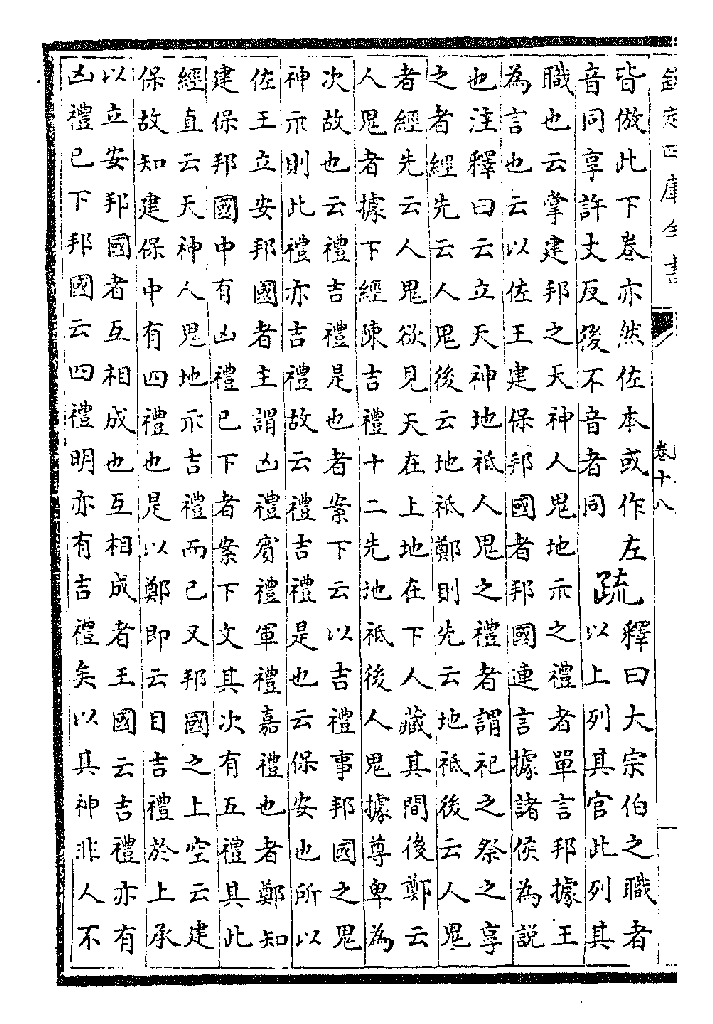 欽定四庫全書
卷十八
皆倣此下卷亦然佐本或作左
音同享許丈反後不音者同
疏
釋曰大宗伯之職者
以上列其官此列其
職也云掌建邦之天神人鬼地示之禮者單言邦據王
為言也云以佐王建保邦國者邦國連言據諸侯為說
也注釋曰云立天神地祗人鬼之禮者謂祀之祭之享
之者經先云人鬼後云地祗鄭則先云地祗後云人鬼
者經先云人鬼欲見天在上地在下人藏其間後鄭云
人鬼者據下經陳吉禮十二先地祗後人鬼據尊卑為
次故也云禮吉禮是也者案下云以吉禮事邦國之鬼
神示則此禮亦吉禮故云禮吉禮是也云保安也所以
佐王立安邦國者主謂凶禮賓禮軍禮嘉禮也者鄭知
建保邦國中有凶禮已下者案下文其次有五禮具此
經直云天神人鬼地示吉禮而已又邦國之上空云建
保故知建保中有四禮也是以鄭即云目吉禮於上承
以立安邦國者互相成也互相成者王國云吉禮亦有
凶禮已下邦國云四禮明亦有吉禮矣以其神非人不